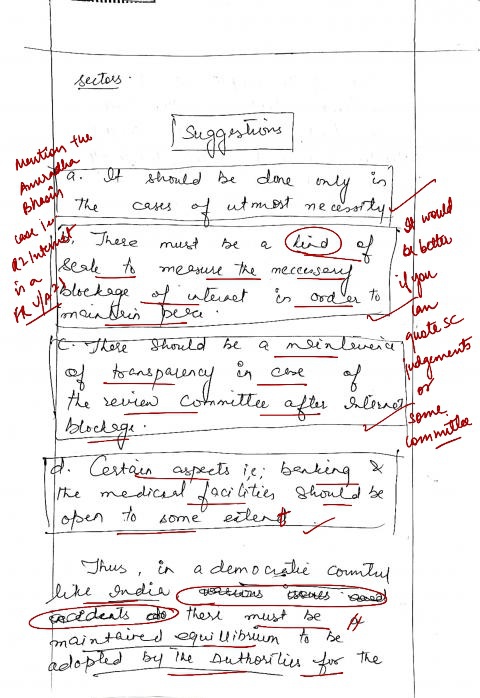 sectors.
Suggestions
a. It should be done only in
the cases of utmost necessity
There must be a kind of
scale to measure the neccessary
blockage of internet in order to
maintain peace.
c. There should be a maintenence
of transparency in case of
the review committee after Internet
blockage.
d. Certain aspects i.e; banking &
the medical facilities should be
open to some extent
Thus, in a democratic country
like India various issues and
incidents do there must be
maintained equillibrium to be
adopted by the authorities for the
Mention the
Anuradha
Bhasin
case i.e
R2 Internet
is a
FR U/A
It would
be better
if you
can
quote SC
judgements
or
some
committee